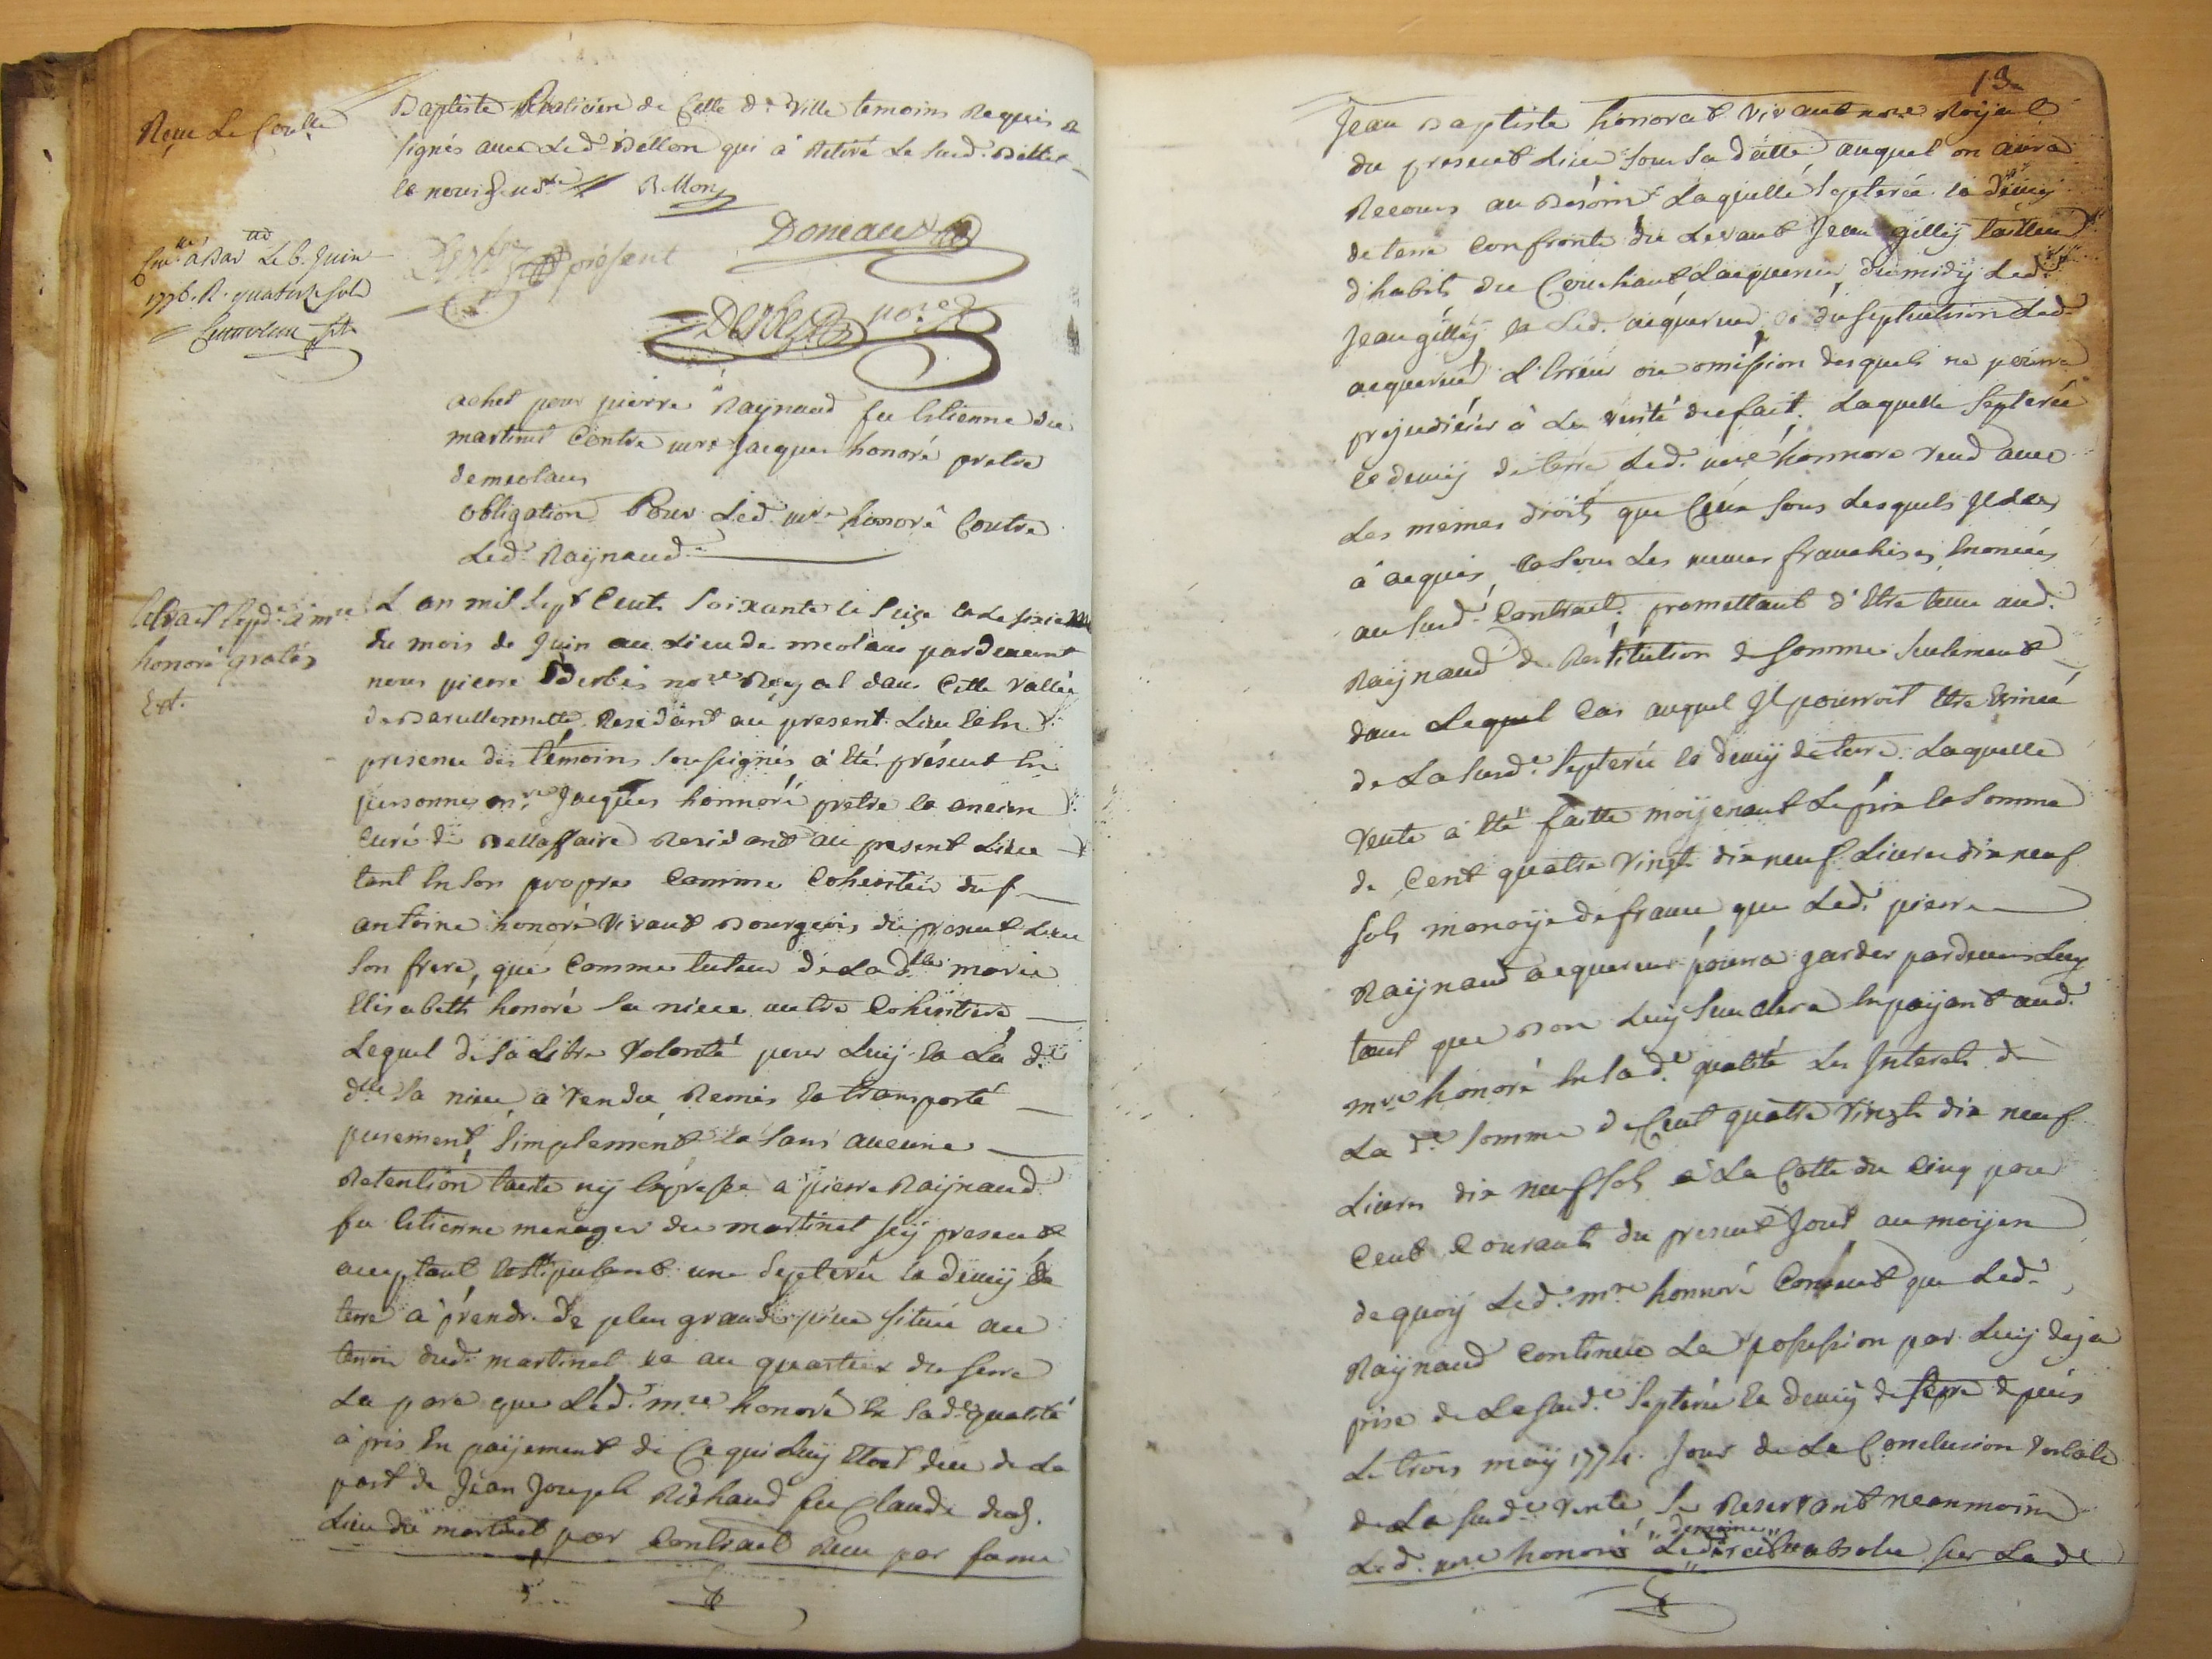 Baptiste Praticien de Cette de Ville temoins Requis &
signés avec Led. Bellon qui a Retiré Le Susd. Billet
et nous Bellon
Doneaud
présent
Derbez nore
Reçu Le Controlle
Cllé à Barttte Le 6. Juin
1776. R. quatorze sols
achet pour pierre Raÿnaud feu Etienne du
martinet Contre mre Jacques honoré pretre
de meolans
obligation Pour Led. mre honoré Contre
Led. Raÿnaud
Extrait Exped. à mre
honoré gratis
Ext.
L'an mil Sept Cents Soixante et Seize et Le sixieme
du mois de Juin au Lieu de meolans pardevant
nous pierre Derbés nore Royal dans Cette Vallée
de Barcellonnette Residant au present Lieu et En
presence des témoins Soussignés a Eté présent En
personne mre Jacques honnoré pretre et ancien
Curé de Bellaffaire Residant au present Lieu
tant En Son propre Comme Coheritier du f
antoine honoré Vivant Bourgeois du present Lieu
Son frere, que Comme tuteur de La dlle marie
Elisabeth honoré Sa niece autre Coheritiere
Lequel de Sa Libre Volonté pour Luy et La d.
dlle Sa niece a Vendu Remis et transporté
purement, Simplement et Sans aucune
Retention tacite nÿ Expresse a pierre Raÿnaud
feu Etienne menager du martinet Jcÿ present
acceptant et Stipulant une Septerée et demÿ de
terre a prendre de plus grande piece Située au
terroir dud. martinet et au quartier du Serre
La para que Led. mre honoré En Sad. qualité
a pris En paÿement de Ce qui Luy Etoit deu de La
part de Jean Joseph Richaud feu Claude dud.
Lieu du martinet par Contract Reçu par fame
13
Jean Baptiste honorat Vivant nore Royal
du present Lieu Sous Sa datte auquel on aura
Recours au Besoin Laquelle Septerée et demÿ
de terre Confronte du Levant Jean gillÿ tailleur
d'habits du Couchant L'acquereur, du midÿ Led.
Jean gillÿ et Led. acquereur, et du Septentrion Led.
acquereur L'Erreur ou omission desquels ne pourra
prejudicier à La verité du fait. Laquelle Septerée
et demÿ de terre Led. mre honnoré vend avec
Les memes droits que Ceux Sous Lesquels Il Les
a acquis, et Sous Les memes franchises Enoncées
au Susd. Contract. promettant d'Etre tenu aud.
Raÿnaud de Restitution de Somme Seulement
dans Lequel Cas auquel Il pourroit Etre Evincé
de La Susd. Septerée et demÿ de terre. Laquelle
Vente a Eté faitte moÿenant Le prix et Somme
de Cent quatre Vingt dix neuf Livres dix neuf
Sols monoÿe de france, que Led. pierre
Raÿnaud acquereur pourra garder pardevers Luy
tant que Bon Luÿ Semblera En paÿant aud.
mre honoré En Sa d. qualité Les Interets de
La de Somme de Cent quatre Vingts dix neuf
Livres dix neuf Sols à La Cotte du Cinq pour
Cent Courants du present Jour au moÿen
de quoÿ Led. mre honnoré Consent que Led.
Raÿnaud Continue La possession par Luÿ deja
prise de La Susd. Septerée et demÿ de terre depuis
Le trois maÿ 1774. Jour de La Conclusion Verbale
de La Susd. Vente Se Reservant neanmoins
Led. mre honoré Le domaine absolu Sur La de